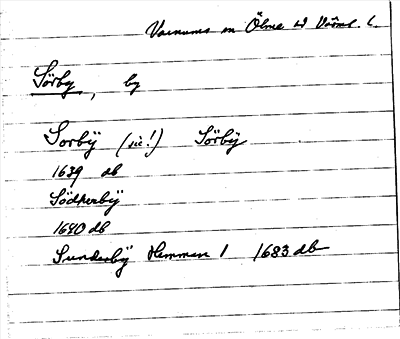 Varnums sn Ölme hd Värml. l.
Sörby, by
Sorbÿ (sic!) Sörbÿ
1639 db
Södherbÿ
1680 db
Sunderbÿ Hemman 1 1683 db